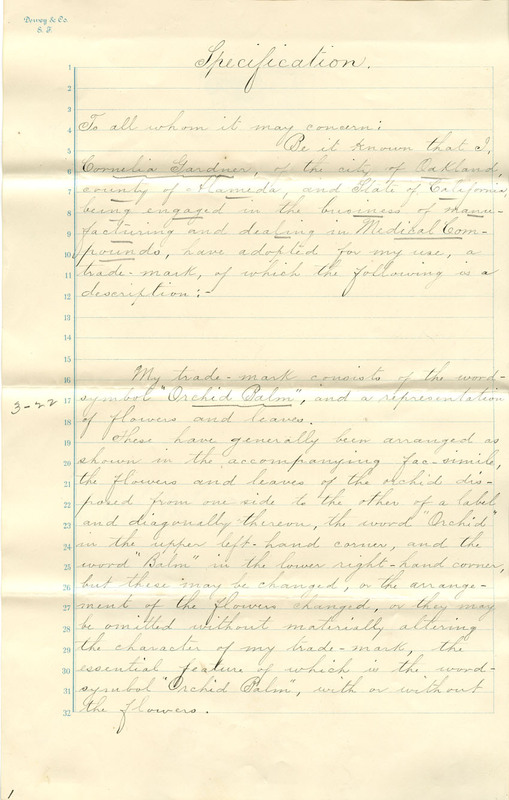 Dewey & Co.
S. F.
Specification.
1
2
3
4 To all whom it may concern:
5 Be it known that I,
6 Cornelia Gardner, of the city of Oakland,
7 county of Alameda, and State of California,
8 being engaged in the business of manu-
9 facturing and dealing in Medical Com-
10 pounds, have adopted for my use, a
11 trade-mark, of which the following is a
12 description:-
13
14
15
16 My trade-mark consists of the word-
17 symbol "Orchid Balm", and a representation
3-22
18 of flowers and leaves.
19 These have generally been arranged as
20 shown in the accompanying fac-simile,
21 the flowers and leaves of the orchid dis-
22 posed from one side to the other of a label
23 and diagonally thereon, the word "Orchid"
24 in the upper left-hand corner, and the
25 word "Balm" in the lower right-hand corner,
26 but these may be changed, or the arrange-
27 ment of the flowers changed, or they may
28 be omitted without materially altering
29 the character of my trade-mark, the
30 essential feature of which is the word-
31 symbol "Orchid Balm", with or without
32 the flowers.
1